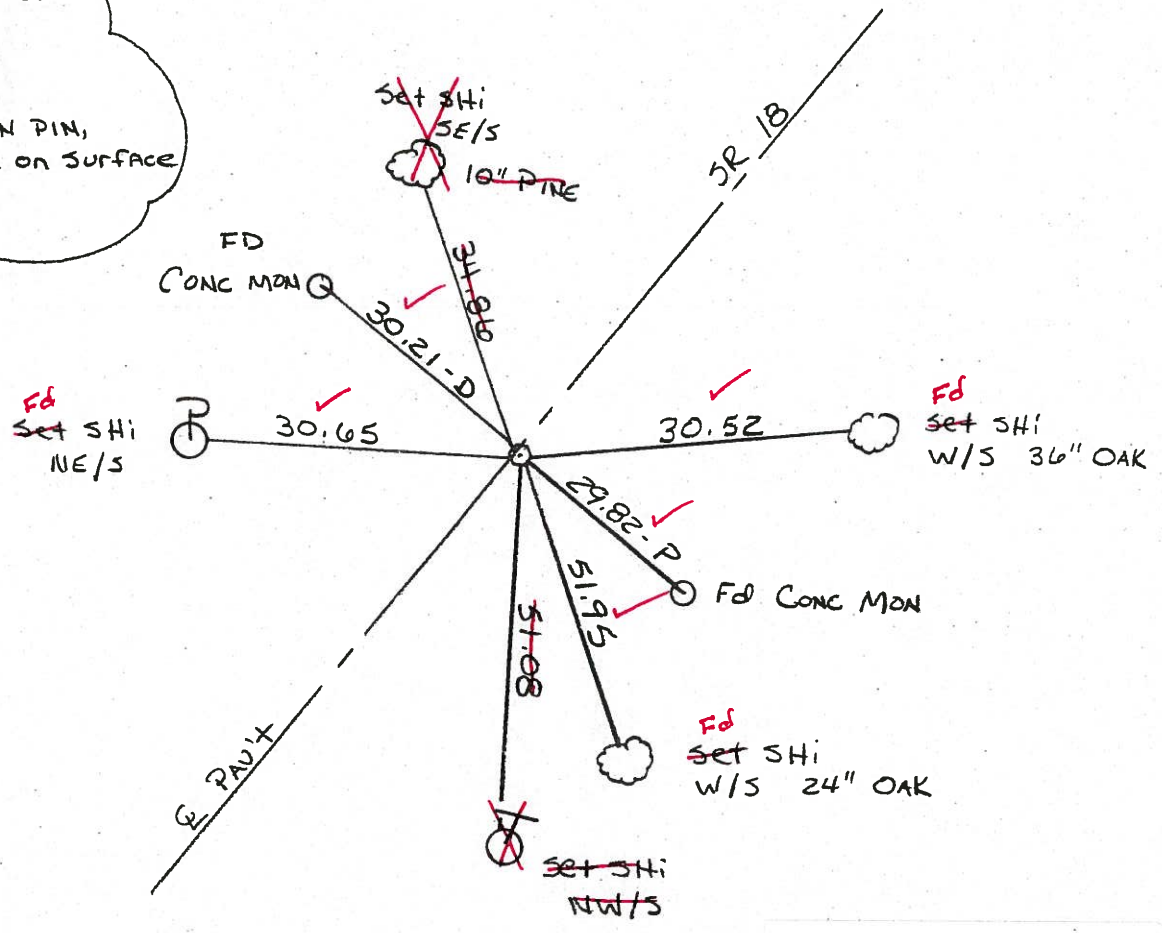 N PIN,
on Surface
Set SHi
SE/S
10" PINE
SR 18
FD
CONC MON
34.86
30.21-D
Fd
Set SHi
NE/S
30.65
30.52
Fd
Set SHi
W/S 36" OAK
29.82-P
Fd CONC MON
51.95
51.08
Fd
Set SHi
W/S 24" OAK
℄ PAV't
Set SHi
NW/S